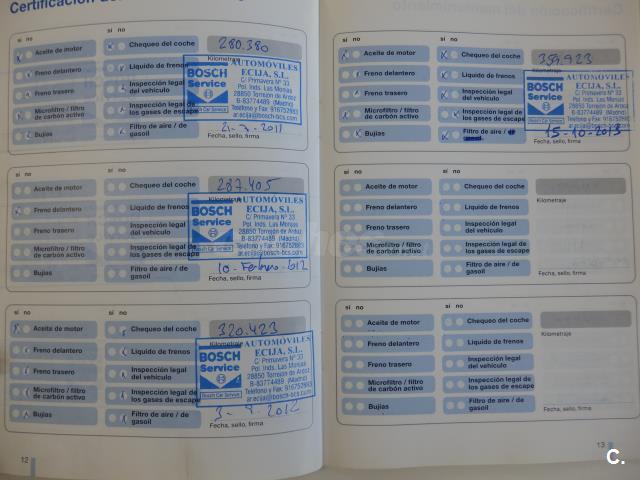 Certificación
sí no
Aceite de motor
Chequeo del coche
280.380
Kilometraje
Freno delantero
Líquido de frenos
Freno trasero
Inspección legal del vehículo
Microfiltro / filtro de carbón activo
Inspección legal de los gases de escape
Bujías
Filtro de aire / de gasoil
BOSCH Service
Bosch Car Service
AUTOMÓVILES ECIJA, S.L.
C/ Primavera Nº 33
Pol. Inds. Las Monjas
28850 Torrejón de Ardoz
B-83774489 (Madrid)
ar.ecija@bosch-bcs.com
2011
Fecha, sello, firma
sí no
Aceite de motor
Chequeo del coche
287.405
Kilometraje
Freno delantero
Líquido de frenos
Freno trasero
Inspección legal del vehículo
Microfiltro / filtro de carbón activo
Inspección legal de los gases de escape
Bujías
Filtro de aire / de gasoil
BOSCH Service
Bosch Car Service
AUTOMÓVILES ECIJA, S.L.
C/ Primavera Nº 33
Pol. Inds. Las Monjas
28850 Torrejón de Ardoz
B-83774489 (Madrid)
ar.ecija@bosch-bcs.com
10-Febrero-2012
Fecha, sello, firma
sí no
Aceite de motor
Chequeo del coche
320.423
Kilometraje
Freno delantero
Líquido de frenos
Freno trasero
Inspección legal del vehículo
Microfiltro / filtro de carbón activo
Inspección legal de los gases de escape
Bujías
Filtro de aire / de gasoil
BOSCH Service
Bosch Car Service
AUTOMÓVILES ECIJA, S.L.
C/ Primavera Nº 33
Pol. Inds. Las Monjas
28850 Torrejón de Ardoz
B-83774489 (Madrid)
ar.ecija@bosch-bcs.com
2012
Fecha, sello, firma
12
sí no
Aceite de motor
Chequeo del coche
359.923
Kilometraje
Freno delantero
Líquido de frenos
Freno trasero
Inspección legal del vehículo
Microfiltro / filtro de carbón activo
Inspección legal de los gases de escape
Bujías
Filtro de aire /
BOSCH Service
Bosch Car Service
AUTOMÓVILES ECIJA, S.L.
C/ Primavera Nº 33
Pol. Inds. Las Monjas
28850 Torrejón de Ardoz
B-83774489 (Madrid)
ar.ecija@bosch-bcs.com
15-10-2013
Fecha, sello, firma
sí no
Aceite de motor
Chequeo del coche
Kilometraje
Freno delantero
Líquido de frenos
Freno trasero
Inspección legal del vehículo
Microfiltro / filtro de carbón activo
Inspección legal de los gases de escape
Bujías
Filtro de aire / de gasoil
Fecha, sello, firma
sí no
Aceite de motor
Chequeo del coche
Kilometraje
Freno delantero
Líquido de frenos
Freno trasero
Inspección legal del vehículo
Microfiltro / filtro de carbón activo
Inspección legal de los gases de escape
Bujías
Filtro de aire / de gasoil
Fecha, sello, firma
13
C.